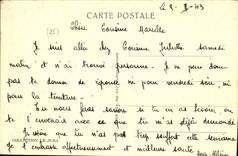 CARTE POSTALE
Le 2 - 8 - 43
(25)
Chère Cousine Marcelle
Je suis allée chez Cousine Juliette samedi
matin et n'ai trouvé personne. Je ne peux donc
pas te donner de réponse ni pour vendredi soir, ni
pour la teinture.
Tu nous feras savoir si tu en as besoin, ou
te l'envoyer avec ce que tu m'as déjà demandé
J'espère que tu n'as pas trop souffert cette semaine
Je t'embrasse affectueusement et meilleure santé
COLLECTION LE JURA